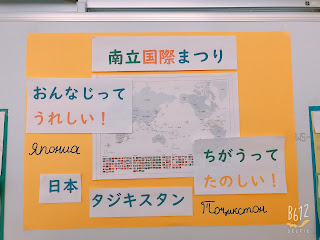 南立国際まつり
おんなじって
うれしい！
Япония
ちがうって
たのしい！
日本
タジキスタン
Тоҷикистон
B612
SELFIE